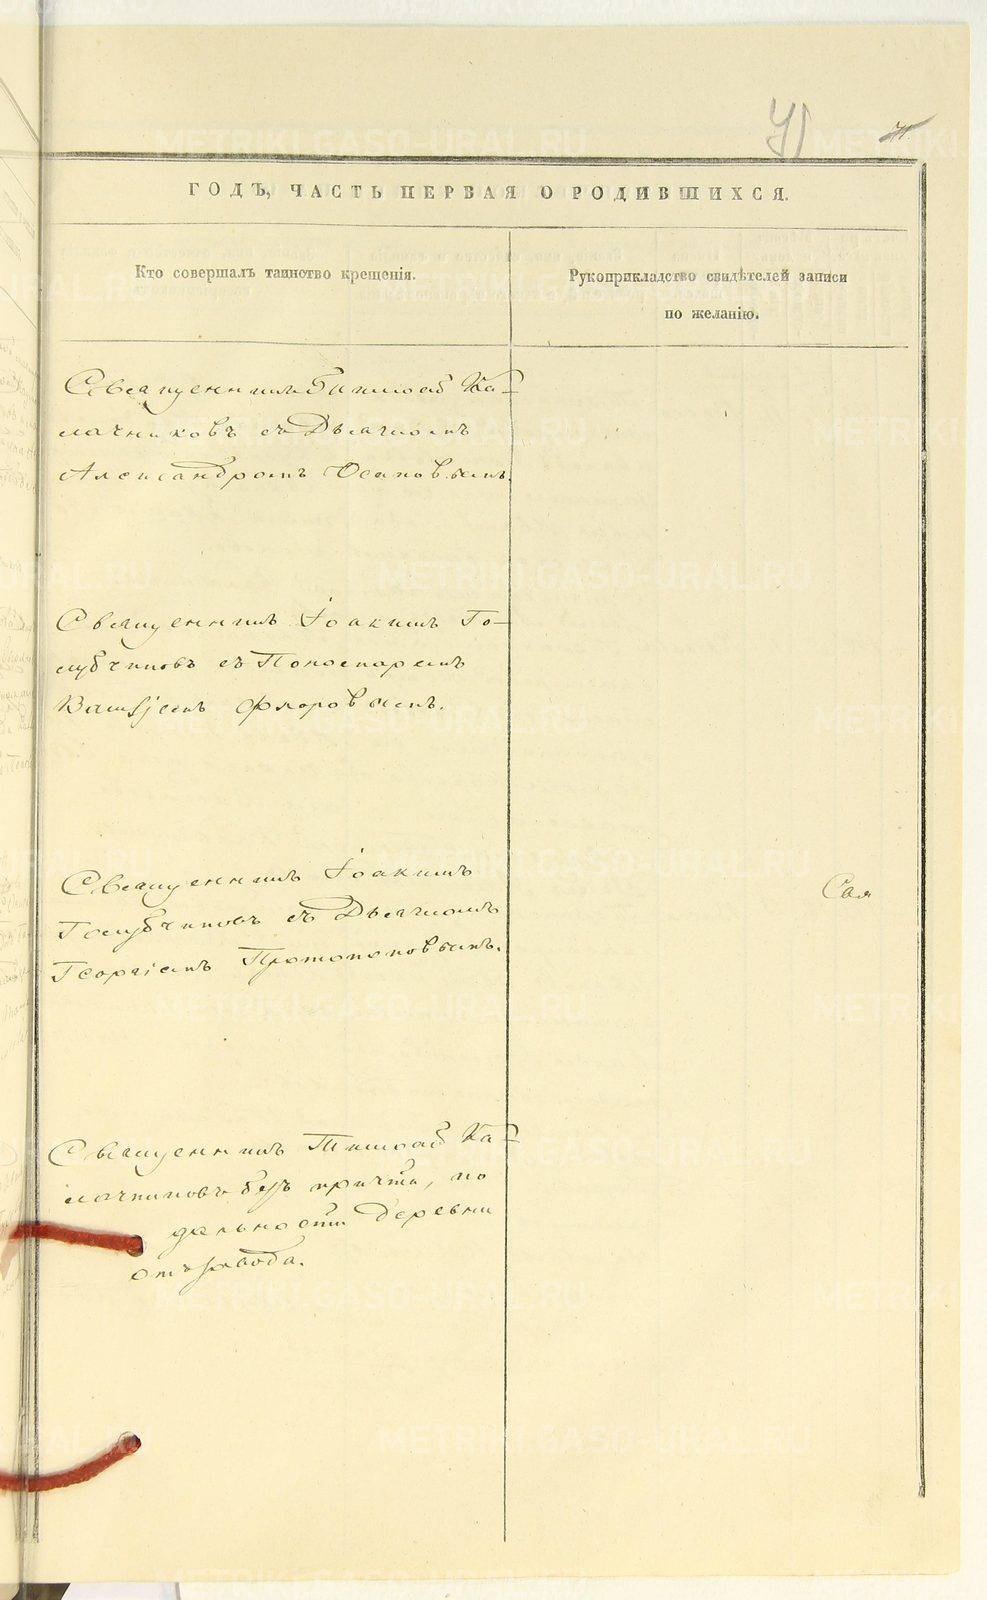 71
71.
ГОДЪ, ЧАСТЬ ПЕРВАЯ О РОДИВШИХСЯ.
Кто совершалъ таинство крещенія.
Рукоприкладство свидѣтелей записи
по желанію.
Священникъ Тимоѳей Ка-
лачниковъ съ Дьячкомъ
Александромъ Осиповымъ.
Священникъ Іоакимъ Го-
лубчиковъ съ Пономаремъ
Флоровымъ.
Священникъ Іоакимъ
Голубчиковъ съ Дьячкомъ
Георгіемъ Протопоповымъ.
Священникъ Тимоѳей Ка-
лачниковъ безъ причта, по
дальности деревни
отъ завода.
METRIKI.GASO-URAL.RU